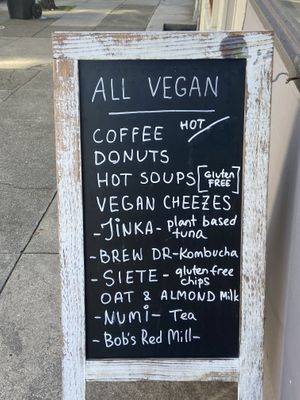 ALL VEGAN
COFFEE HOT/
DONUTS
HOT SOUPS [Gluten FREE]
VEGAN CHEEZES
-JINKA- plant based tuna
-BREW DR-Kombucha
-SIETE- gluten free chips
OAT & ALMOND Milk
-NUMI- Tea
-Bob's Red Mill-